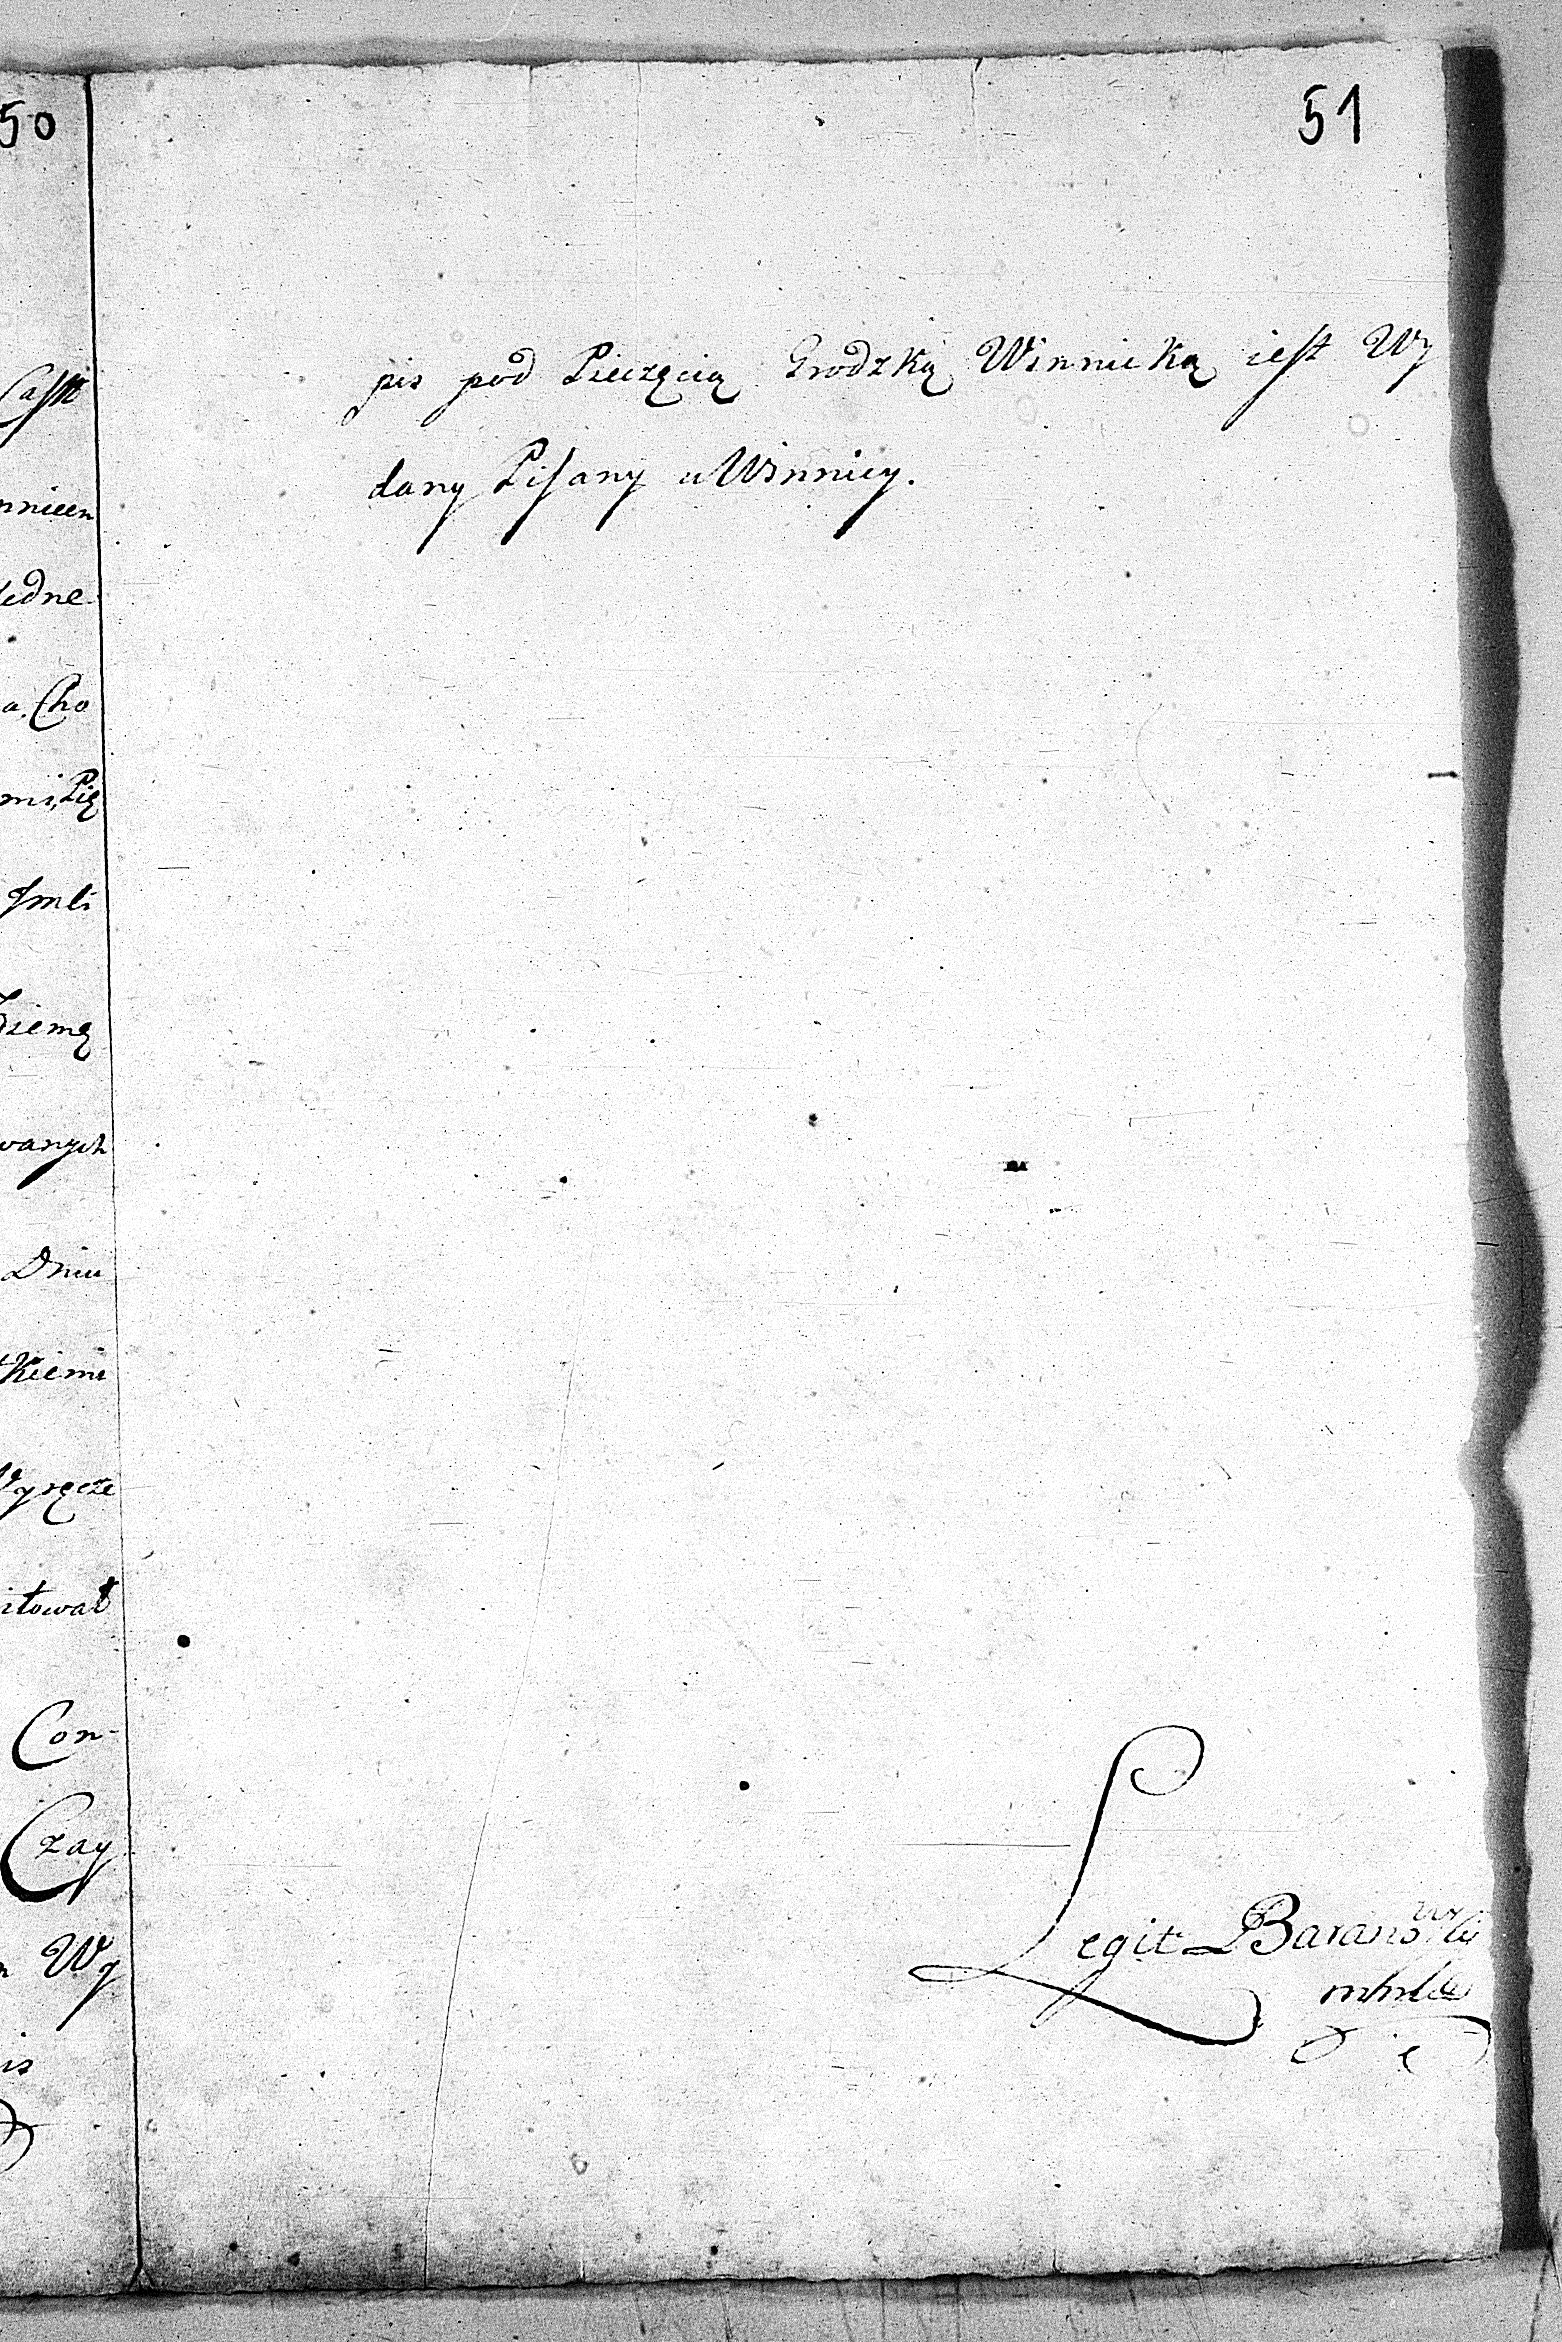 50
Casst
nnicen
iedne
a, Cho
mi, Pię
Jmci
dziemę
wanych
Dniu
kiemi
Wyręcze
itował
Con-
Czay
Wy
is
51
pis pod Pieczęcią Grodzką Winnicką iest Wy
dany Pisany u Winnicy.
Legit Baranowski